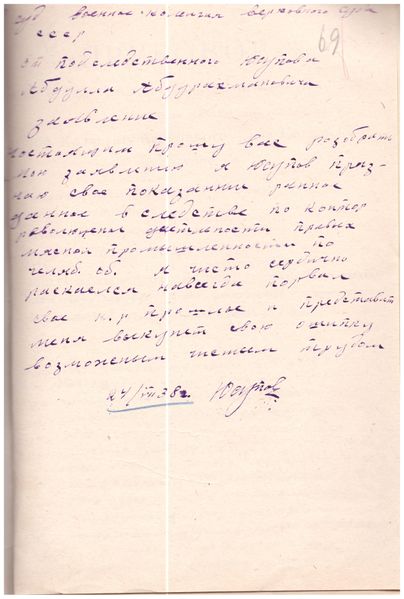 суд Военное колегия верховного суда
СССР
69
от подследственного Юсупова
Абдулла Абдурахмановича
заявление
настоящим прошу вас разобрать
мою заявлению я Юсупов приз-
наю свое показании ранное
данное в следстве по контр
революцион деятельности правых
мясной промышленности по
челяб. об. я чисто сердично
раскаелся навсегда порвал
свое к.р прошлое и представит
меня выкупет свою ошипку
возможеным чистым трудом
24/VII 38 г. Юсупов